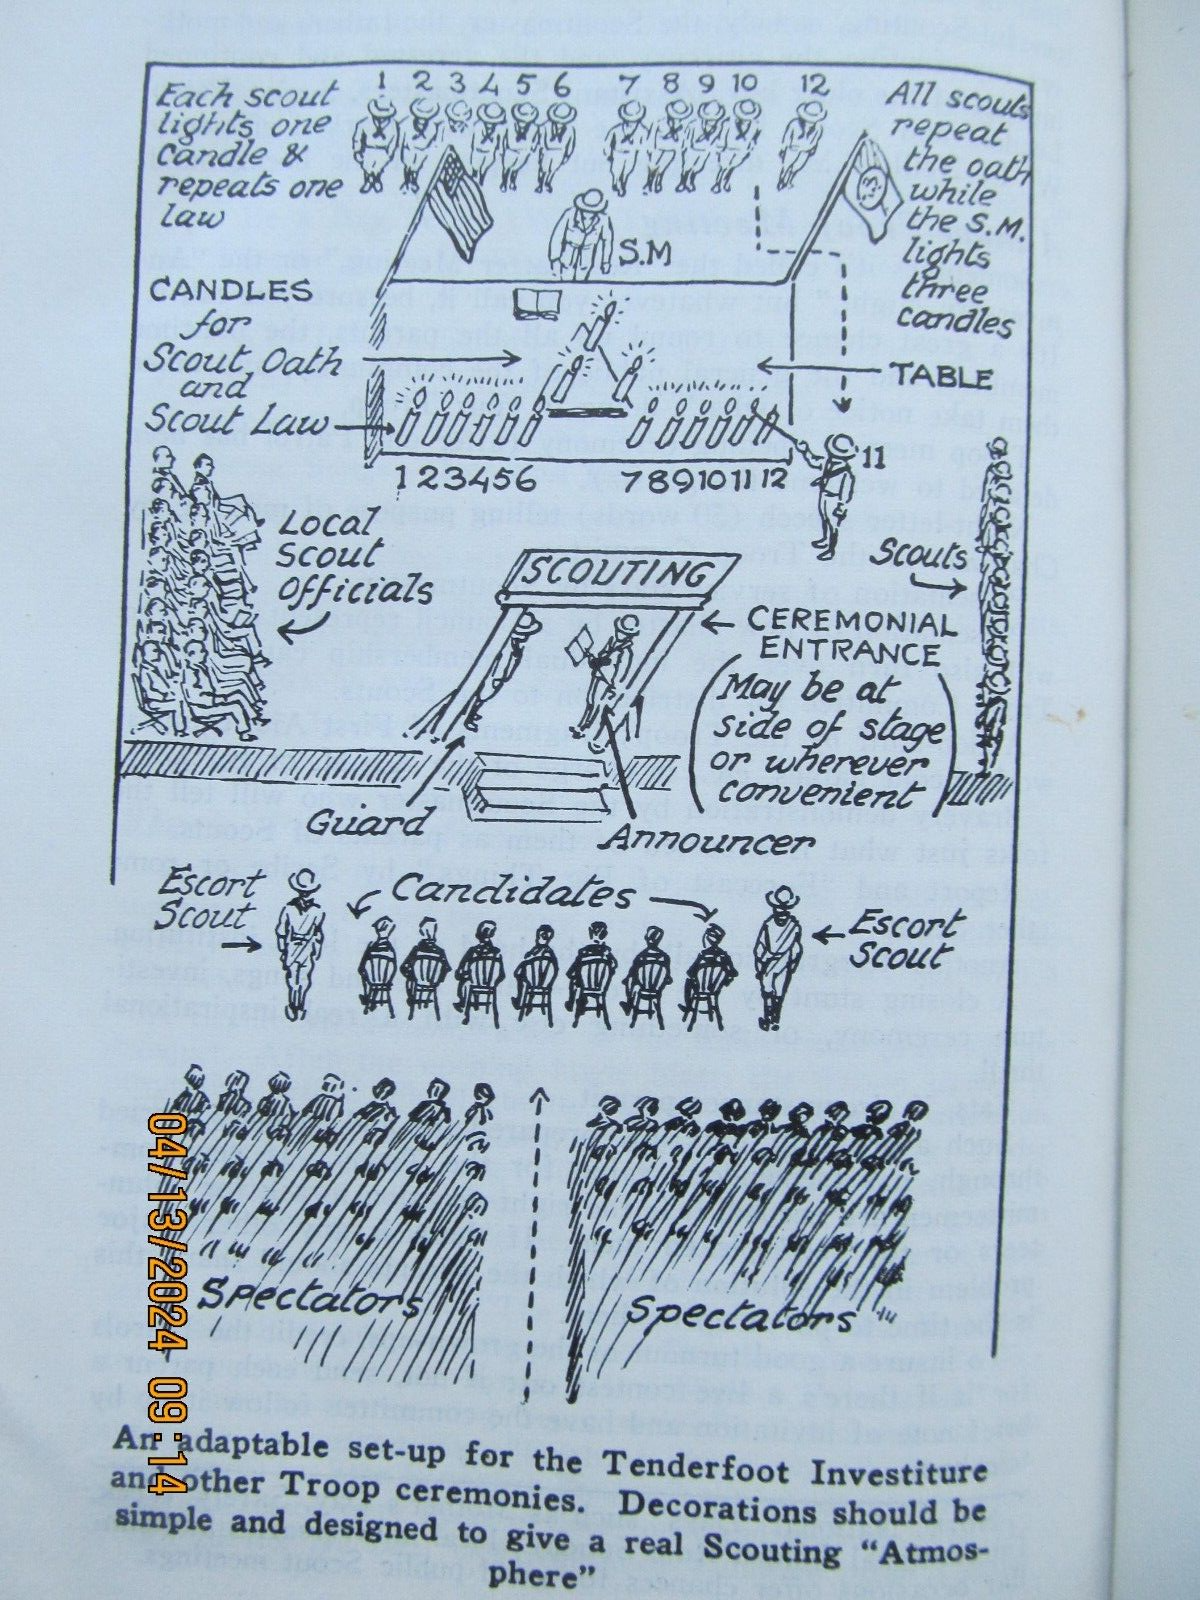 1 2 3 4 5 6 7 8 9 10 12
Each scout
lights one
candle &
repeats one
law
All scouts
repeat
the oath
while
the S.M.
lights
three
candles
S.M
CANDLES
for
Scout Oath
and
Scout Law
TABLE
1 2 3 4 5 6 7 8 9 10 11 12
11
Local
Scout
Officials
SCOUTING
Scouts
CEREMONIAL
ENTRANCE
(May be at
side of stage
or wherever
convenient)
Guard
Announcer
Escort
Scout
Candidates
Escort
Scout
Spectators
Spectators
04/13/2024 09:14
An adaptable set-up for the Tenderfoot Investiture
and other Troop ceremonies. Decorations should be
simple and designed to give a real Scouting "Atmos-
phere"